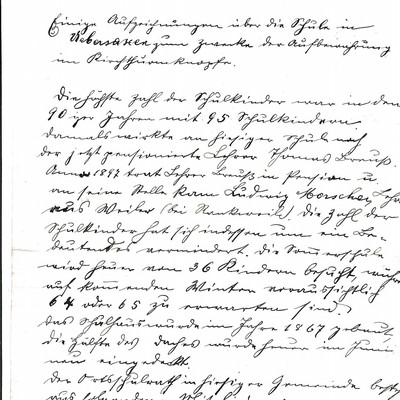 Einige Aufzeichnungen über die Schule in
Uebersaxen zum Zwecke der Aufbewahrung
im Kirchthurmknopfe.
Die höchste Zahl der Schulkinder war in den
90 iger Jahren mit 95 Schulkindern
damals wirkte an hiesiger Schule noch
der jetzt pensionierte Lehrer Thomas Breuß.
Anno 1897 trat Lehrer Breuß in Pension u
an seine Stelle kam Ludwig
aus Weiler (bei Rankweil). Die Zahl der
Schulkinder hat sich indessen um ein Be-
deutendes vermindert. Die Sommerschule
wird heuer von 36 Kindern besucht,
auf kommenden Winter voraussichtlich
64 oder 65 zu erwarten sind.
Das Schulhaus wurde im Jahre 1867 gebaut,
die Hälfte des Daches wurde heuer im Juni
neu eingedeckt
Der Ortsschulrath in hiesiger Gemeinde
aus